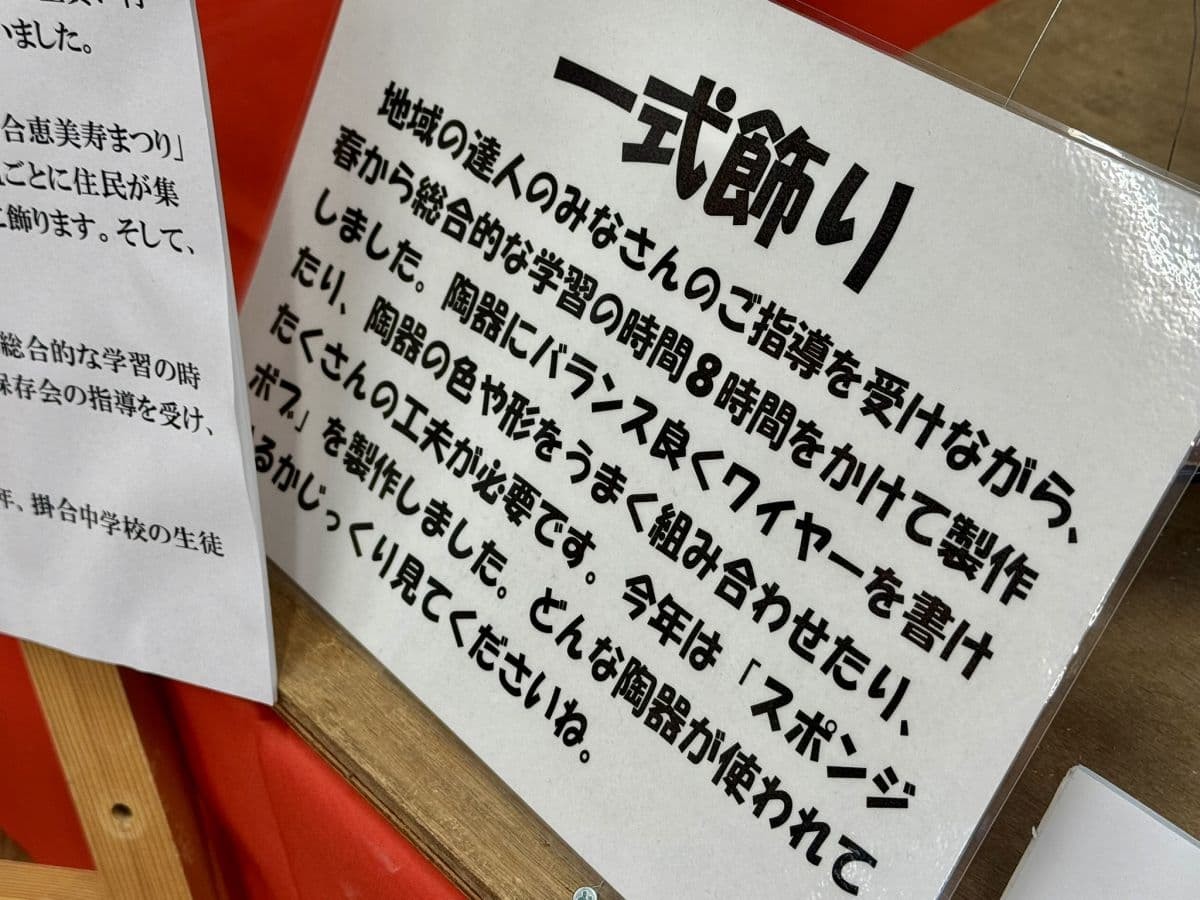 いました。
合恵美寿まつり」
ごとに住民が集
に飾ります。そして、
総合的な学習の時
保存会の指導を受け、
年、掛合中学校の生徒
一式飾り
地域の達人のみなさんのご指導を受けながら、
春から総合的な学習の時間8時間をかけて製作
しました。陶器にバランス良くワイヤーを書け
たり、陶器の色や形をうまく組み合わせたり、
たくさんの工夫が必要です。今年は「スポンジ
ボブ」を製作しました。どんな陶器が使われて
るかじっくり見てくださいね。